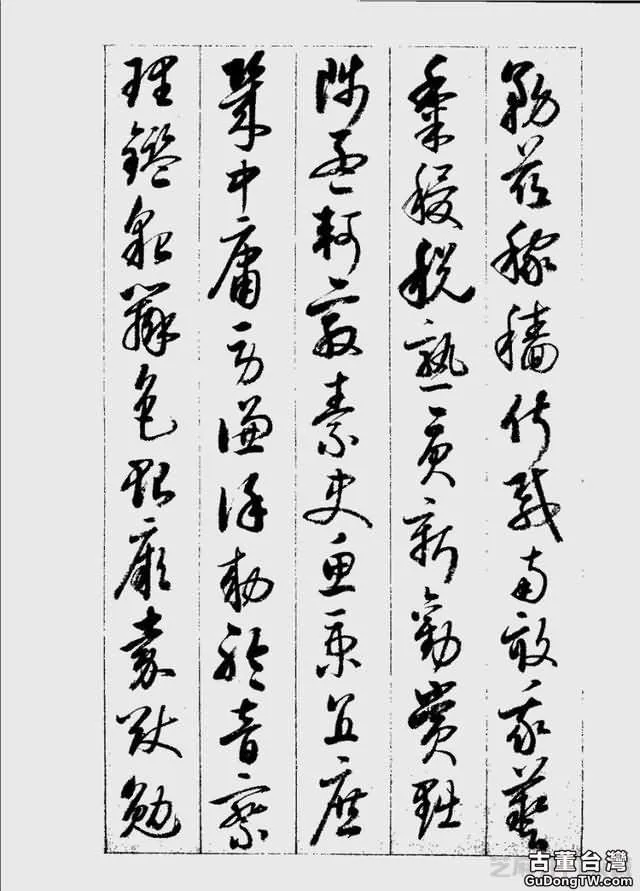 務茲稼穡俶載南畝我藝
黍稷稅熟貢新勸賞黜
陟孟軻敦素史魚秉直庶
幾中庸勞謙謹敕聆音察
理鑑貌辨色貽厥嘉猷勉
古董台灣
GuDongTW.com